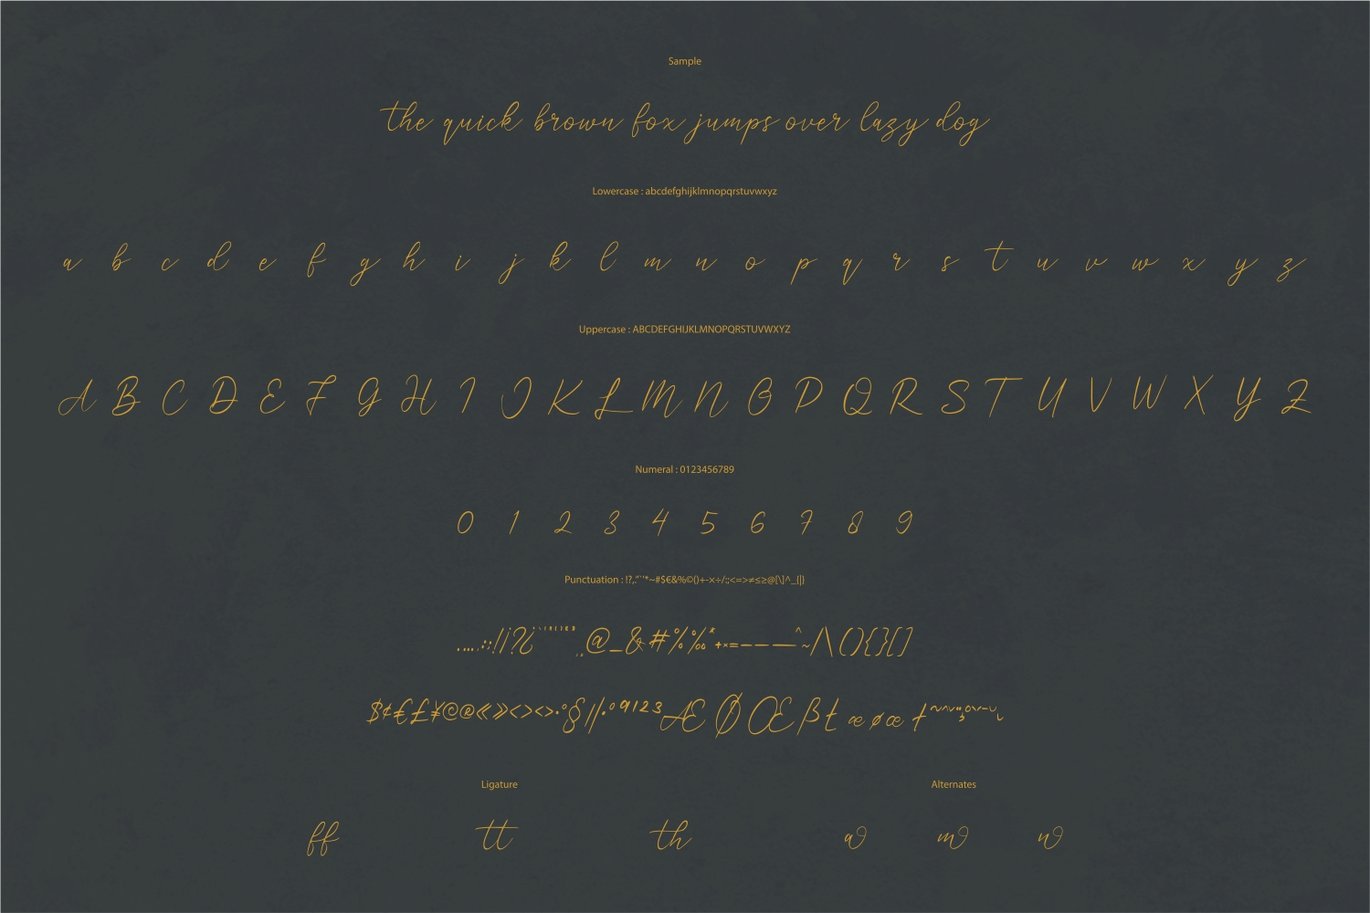 Sample
the quick brown fox jumps over lazy dog
Lowercase : abcdefghijklmnopqrstuvwxyz
a b c d e f g h i j k l m n o p q r s t u v w x y z
Uppercase : ABCDEFGHIJKLMNOPQRSTUVWXYZ
A B C D E F G H I J K L M N O P Q R S T U V W X Y Z
Numeral : 0123456789
0 1 2 3 4 5 6 7 8 9
Punctuation : !?,."`'*~#$€&%©()+-×÷/:;<=>≠≤≥@[\]^_{|}
@_&#%‰*+×=
~/\(){}[]
$¢€£¥©®«»‹›<>·°§
ª¹²³ÆØŒßł æ ø œ
Ligature
Alternates
ff tt th a m n